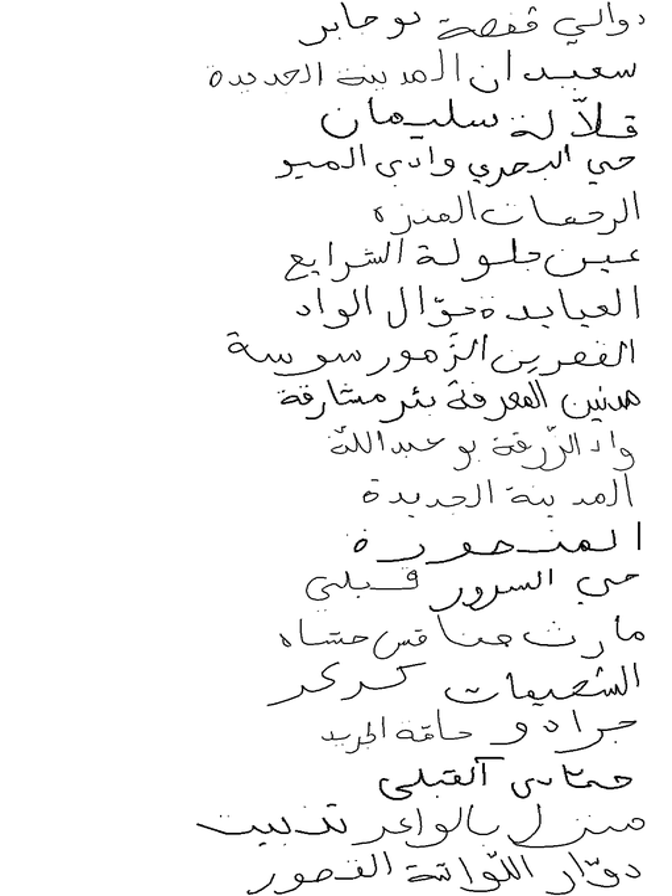 دوالي قفصة بو جابر
سعيدان المدينة الجديدة
قلاّلة سليمان
حي البحري وادي الميو
الرحمات المنزه
عين جلولة الشرايع
العبابدة حوّال الواد
القمرين الزّمور سوسة
مدنين المعرفة بئر مشارقة
واد الزّرقة بو عبد اللّه
المدينة الجديدة
المنصورة
حي السرور قبلي
مارث حنا قس حشاه
الشعيمات كركر
جرادو حامّة الجريد
القبلي
منزل بالواعر تذبيت
دوّار اللّواتة القصور